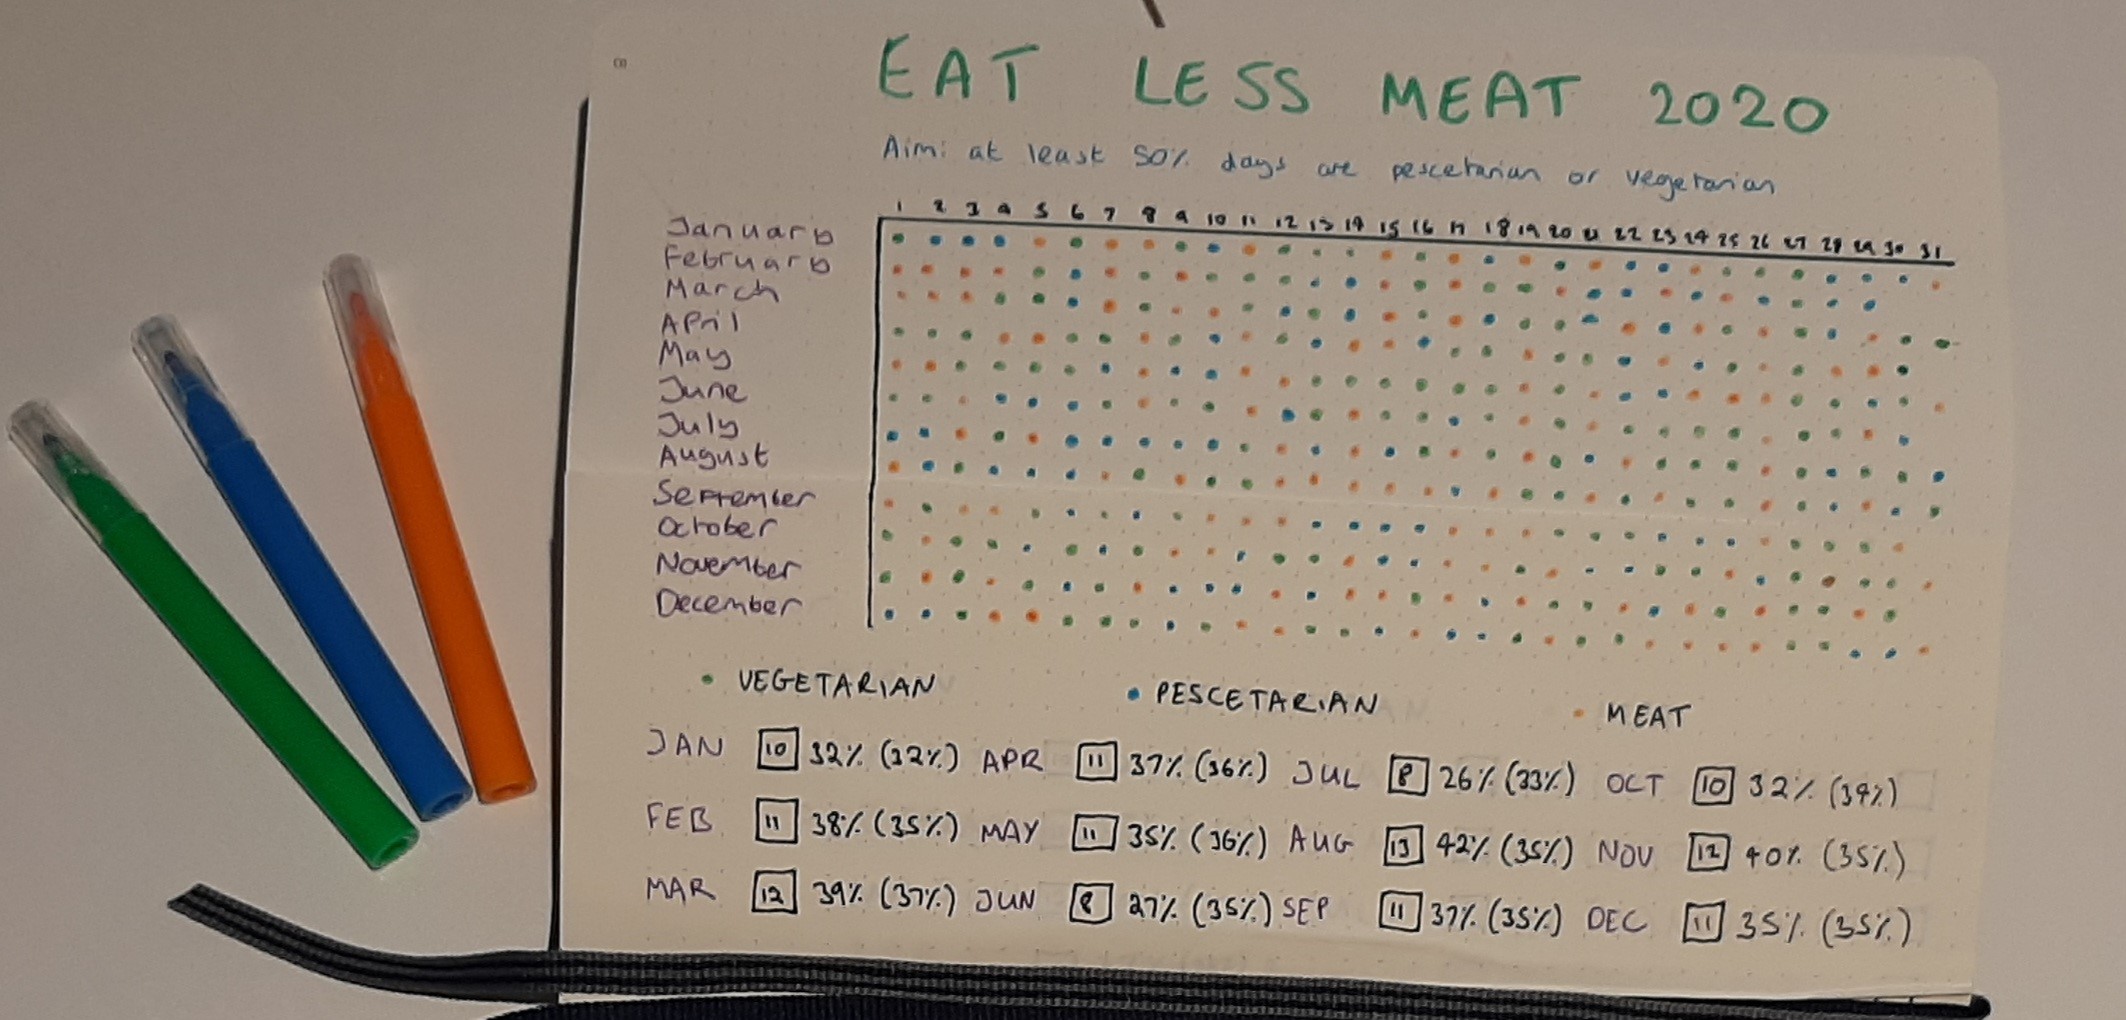 8
EAT LESS MEAT 2020
Aim: at least 50% days are pescetarian or vegetarian
1 2 3 4 5 6 7 8 9 10 11 12 13 14 15 16 17 18 19 20 21 22 23 24 25 26 27 28 29 30 31
January
February
March
April
May
June
July
August
September
October
November
December
VEGETARIAN PESCETARIAN MEAT
JAN 10 32% (32%) APR 11 37% (36%) JUL 8 26% (33%) OCT 10 32% (34%)
FEB 11 38% (35%) MAY 11 35% (36%) AUG 13 42% (35%) NOV 12 40% (35%)
MAR 12 39% (37%) JUN 8 27% (35%) SEP 11 37% (35%) DEC 11 35% (35%)